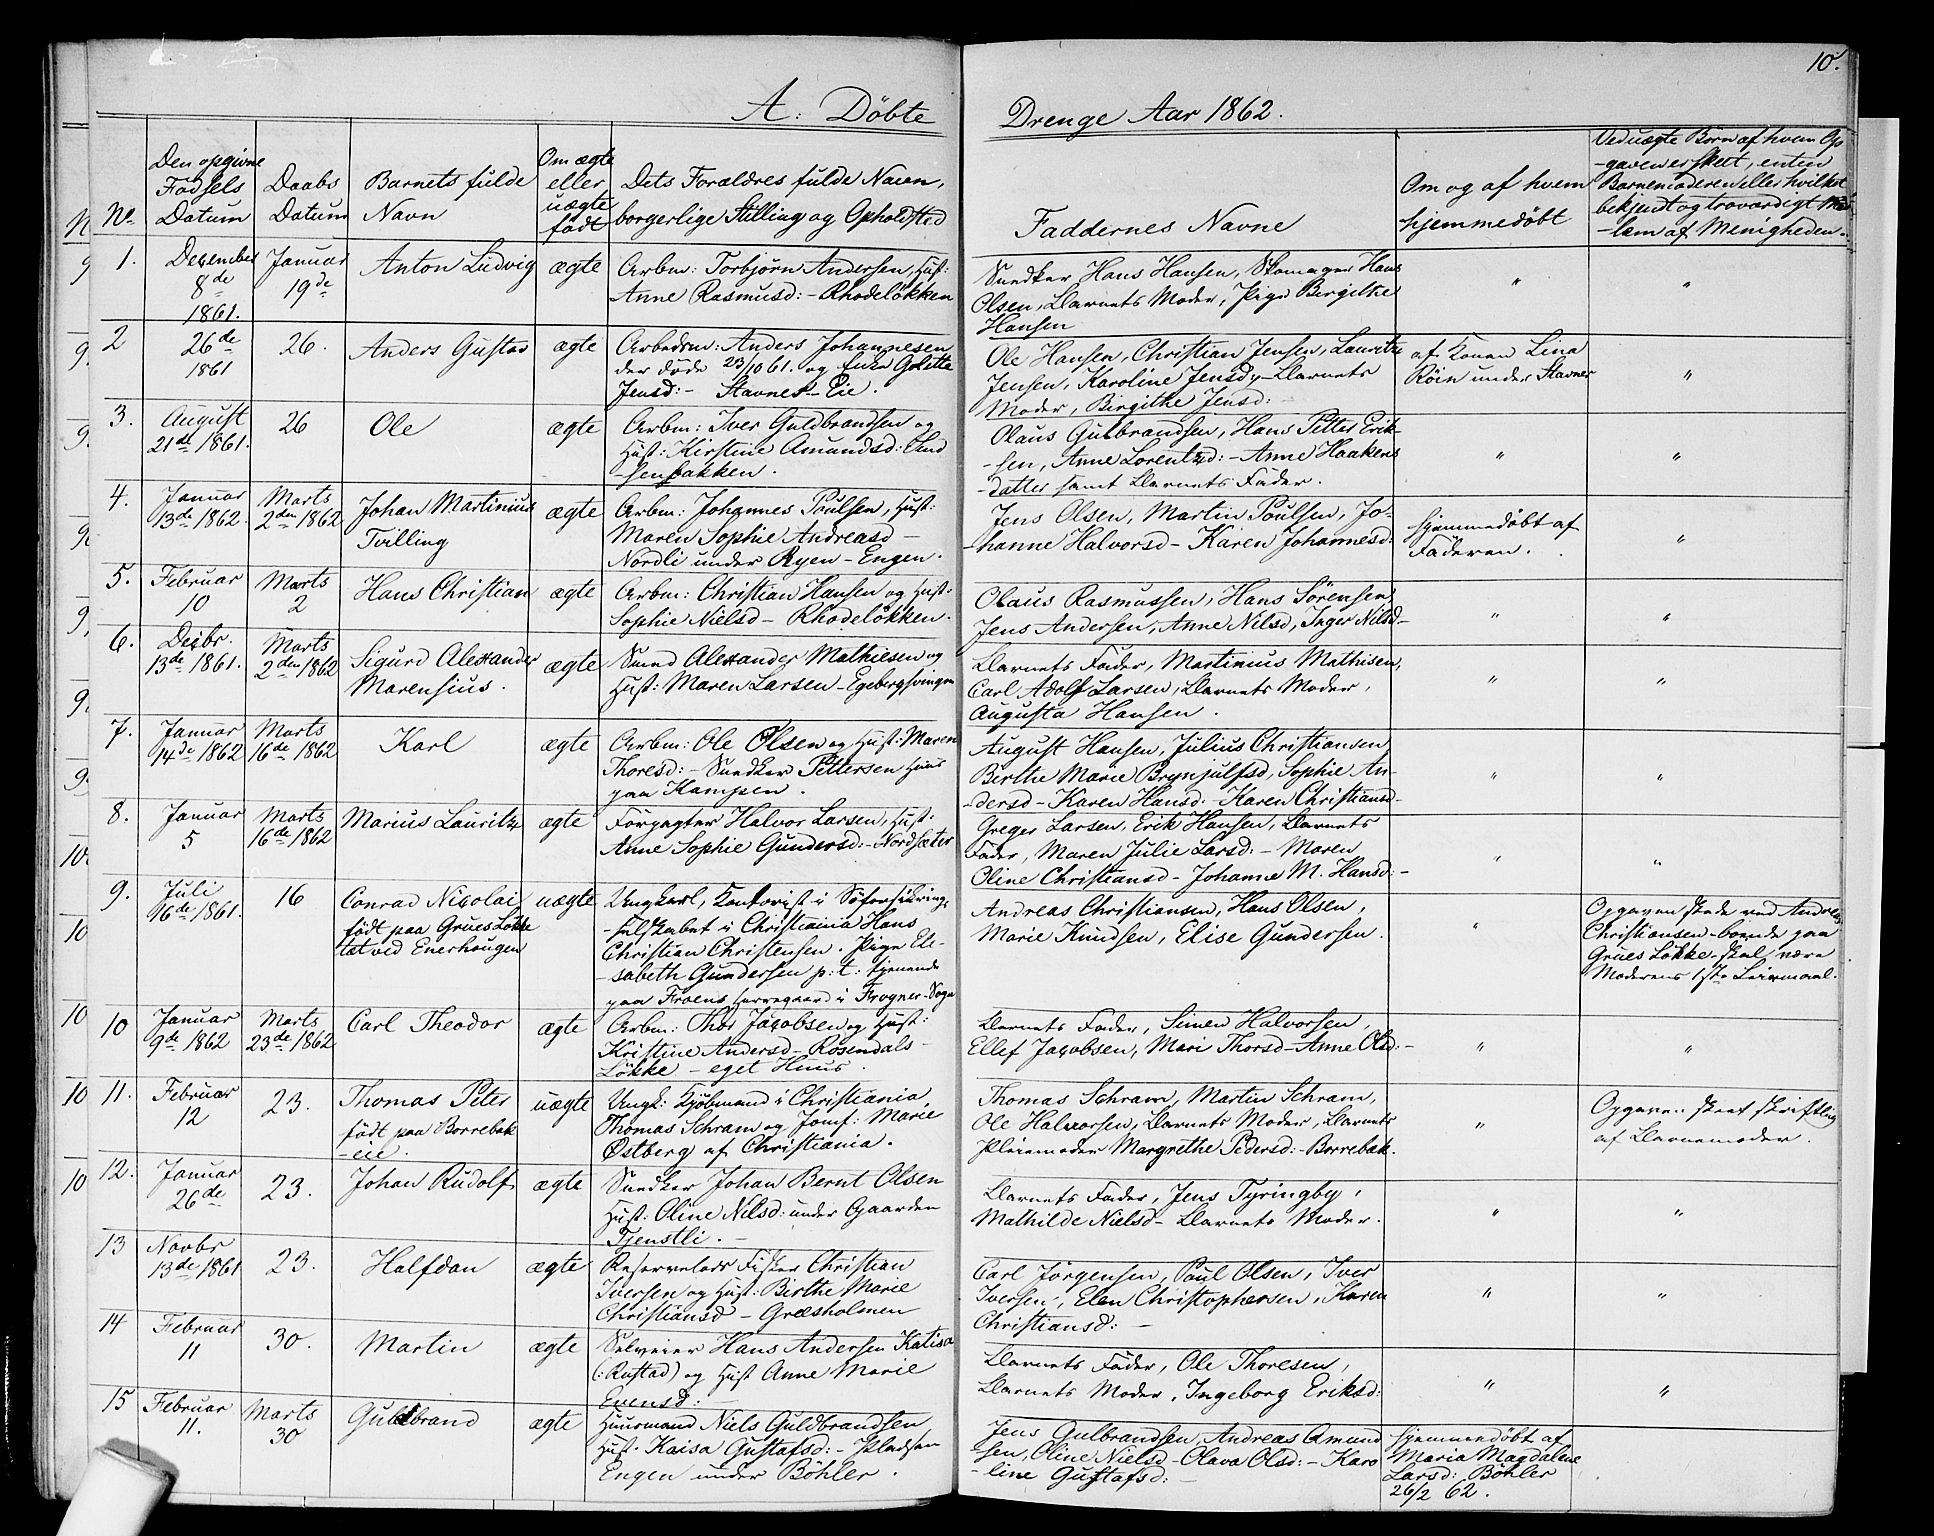 10.
A: Döbte
Drenge Aar 1862.
No.
Den opgivne
Födsels
Datum
Daabs
Datum
Barnets fulde
Navn
Om ægte
eller
uægte
födt
Dets Forældres fulde Navn,
borgerlige Stilling og Opholdsted
Faddernes Navne
Om og af hvem
hjemmedöbt
Ved uægte Börn af hvem Op
-gaven er skeet, enten
Barnemoderen eller hvilket
bekjendt og troværdigt Med
-lem af Menigheden.
1.
Dexember
8de
1861.
Januar
19de
Anton Ludvig
ægte
Arbm: Torbjørn Andersen, Hust:
Anne Rasmusd: - Rhodeløkken
Snedker Hans Hansen, Skomager Hans
Olsen, Barnets Moder, Pige Birgithe
Hansen
"
"
2
26de
1861
26.
Anders Gustav
ægte
Arbedsm: Anders Johannesen
der døde 23/10 61. og Enke
Jensd: - Stavnes-Eie.
Ole Hansen, Christian Jensen, Lauritz
Jensen, Karoline Jensd, Barnets
Moder, Birgithe Jensd: -
af Konen Lina
Röin under Stavnes
"
3.
August
21de 1861.
26
Ole
ægte
Arbm: Iver Guldbrandsen og
Hust: Kirstine Amundsd:
-senbakken.
Olaus Gulbrandsen, Hans Petter Erik-
-sen, Anne Lorentzd: - Anne Haakens
-datter samt Barnets Fader.
"
"
4.
Januar
13de 1862.
Marts
2den 1862
Johan Martinius
Tvilling
ægte
Arbm: Johannes Poulsen, Hust:
Maren Sophie Andreasd -
Nordli under Ryen - Engen.
Jens Olsen, Martin Poulsen, Jo-
-hanne Halvorsd - Karen Johannesd:
Hjemmedöbt af
Faderen.
"
5.
Februar
10
Marts
2
Hans Christian
ægte
Arbm: Christian Hansen og Hust:
Sophie Nielsd - Rhodeløkken.
Olaus Rasmussen, Hans Sørensen,
Jens Andersen, Anne Nilsd, Inger Nilsd-
"
"
6.
Decbr:
13de 1861.
Marts
2den 1862
Sigurd Alexander
Marensius.
ægte
Smed Alexander Mathiesen og
Hust: Maren Larsen - Egebergsvingen
Barnets Fader, Martinius Mathisen,
Carl Adolf Larsen, Barnets Moder,
Augusta Hansen.
"
"
7.
Januar
14de 1862
Marts
16de 1862
Karl
ægte
Arbm: Ole Olsen og Hust: Maren
Thoresd: - Snedker Pettersen Huus
paa Kampen.
August Hansen, Julius Christiansen
Birthe Marie Brynjulfsd, Sophie An-
-dersd - Karen Hansd: Karen Christiansd-
"
"
8.
Januar
5
Marts
16de 1862
Marius Lauritz
ægte
Forpagter Halvor Larsen, Hust:
Anne Sophie Gundersd: - Nordsæter
Greger Larsen, Erik Hansen, Barnets
Fader, Maren Julie Larsd: - Maren
Oline Christiansd - Johanne M. Hansd: -
"
"
9.
Juli
16de 1861.
16
Conrad Nicolai
födt paa Grues Løkke
tet ved Enerhaugen
uægte
Ungkarl, Kontorist i Söforsikrings
-selskabet i Christiania Hans
Christian Christensen. Pige Ele-
-sabeth Gundersen p: t: tjenende
paa Froens Herregaard i Frogner-Sogn
Andreas Christiansen, Hans Olsen,
Marie Knudsen, Elise Gundersen.
"
Opgaven skede ved Andreas
Christiansen - boende paa
Grues Løkke - skal være
Moderens 1ste Leiermaal.
10
Januar
9de 1862
Marts
23de 1862
Carl Theodor
ægte
Arbm: Thor Jacobsen og Hust:
Kristine Andersd - Rosendals-
Løkke - eget Huus.
Barnets Fader, Simen Halvorsen,
Ellef Jacobsen, Mari Thorsd - Anne Olsd: -
"
"
11.
Februar
12
23.
Thomas Peter
födt paa Borrebak
-eie.
uægte
Ungk: Kjöbmand i Christiania,
Thomas Schram og Jomf: Marie
Østberg af Christiania.
Thomas Schram, Martin Schram,
Ole Halvorsen, Barnets Moder, Barnets
Pleiemoder Margrethe Pedersd: - Borrebak.
"
Opgaven skeet skriftlig
af Barnemoder.
12.
Januar
26de
23.
Johan Rudolf
ægte
Snedker Johan Bernt Olsen
Hust: Oline Nilsd: under Gaarden
Tjenstli. -
Barnets Fader, Jens Tyringby,
Mathilde Nielsd - Barnets Moder.
"
"
13
Novbr
13de 1861
23.
Halfdan
ægte
Reservelods Fisker Christian
Iversen og Hust: Birthe Marie
Christiansd - Græsholmen
Carl Jörgensen, Poul Olsen, Iver
Iversen, Elen Christophersen, Karen
Christiansd: -
"
"
14
Februar
11
30.
Martin
ægte
Selveier Hans Andersen Katisa
(: Rustad) og Hust Anne Marie
Evensd: -
Barnets Fader, Ole Thoresen,
Barnets Moder, Ingeborg Eriksd:
"
"
15
Februar
11.
Marts
30
Guldbrand
ægte
Huusmand Niels Guldbrandsen
Hust. Kaisa Gustafsd: - Pladsen
Engen under Böhler.
Jens Gulbrandsen, Andreas Amund
-sen, Oline Nielsd - Olava Olsd: - Karo
-line Gustafsd: -
Hjemmedöbt af
Maria Magdalene
Larsd: Böhler
26/2 62.